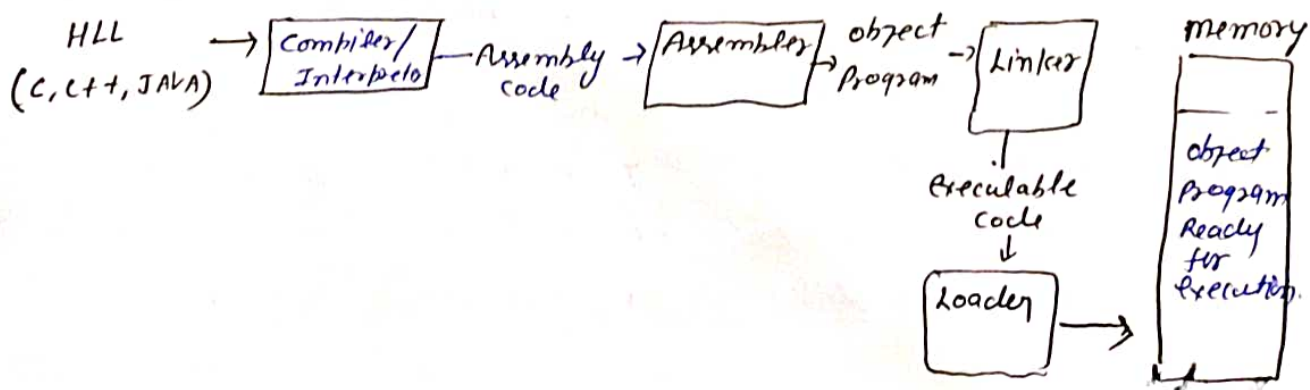 HLL
(C, C++, JAVA)
Compiler/
Interpreto
Assembly
code
Assembler
object
Program
Linker
Executable
Code
Loader
Memory
object
Program
Ready
for
execution.